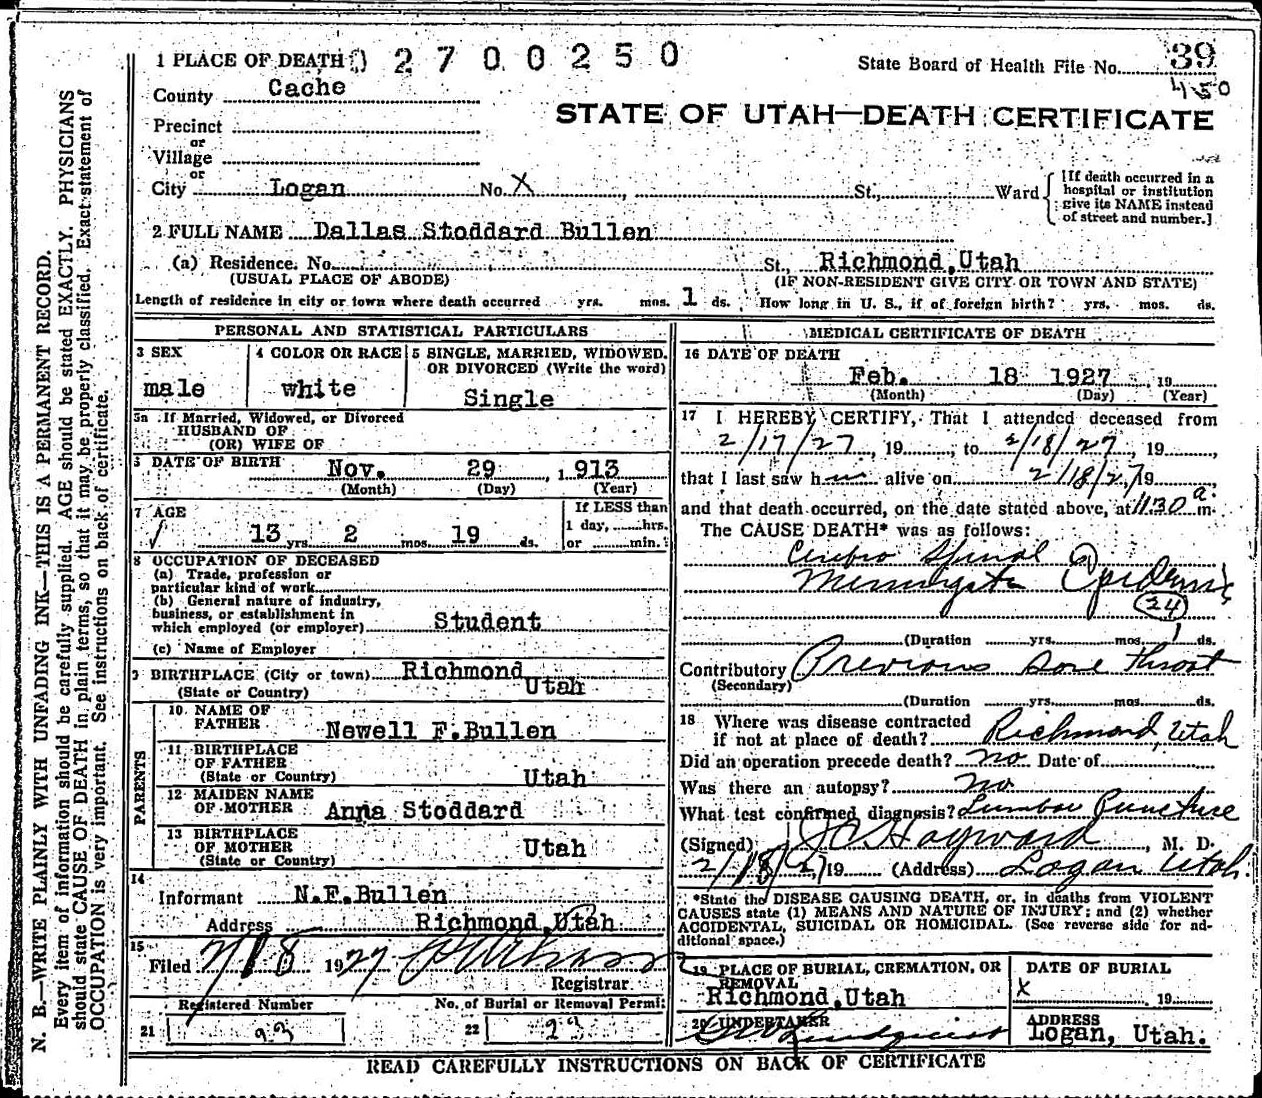 1 PLACE OF DEATH 0 2 7 0 0 2 5 0
State Board of Health File No. 39
450
County Cache
STATE OF UTAH—DEATH CERTIFICATE
Precinct
or
Village
or
City Logan No. X St., Ward
[If death occurred in a
hospital or institution
give its NAME instead
of street and number.]
2 FULL NAME Dallas Stoddard Bullen
(a) Residence. No. St., Richmond, Utah
(USUAL PLACE OF ABODE) (IF NON-RESIDENT GIVE CITY OR TOWN AND STATE)
Length of residence in city or town where death occurred yrs. mos. 1 ds. How long in U. S., if of foreign birth? yrs. mos. ds.
PERSONAL AND STATISTICAL PARTICULARS
3 SEX
male
4 COLOR OR RACE
white
5 SINGLE, MARRIED, WIDOWED,
OR DIVORCED (Write the word)
Single
5a If Married, Widowed, or Divorced
HUSBAND OF
(OR) WIFE OF
DATE OF BIRTH Nov. 29, 1913
(Month) (Day) (Year)
7 AGE
13 yrs. 2 mos. 19 ds.
If LESS than
1 day, hrs.
or min.
8 OCCUPATION OF DECEASED
(a) Trade, profession or
particular kind of work
(b) General nature of industry,
business, or establishment in
which employed (or employer) Student
(c) Name of Employer
9 BIRTHPLACE (City or town) Richmond
(State or Country) Utah
PARENTS
10 NAME OF
FATHER Newell F. Bullen
11 BIRTHPLACE
OF FATHER
(State or Country) Utah
12 MAIDEN NAME
OF MOTHER Anna Stoddard
13 BIRTHPLACE
OF MOTHER
(State or Country) Utah
14
Informant N.F.Bullen
Address Richmond, Utah
15
Filed 1927
Registrar
Registered Number No. of Burial or Removal Permit
21 93 22
MEDICAL CERTIFICATE OF DEATH
16 DATE OF DEATH
Feb. 18 1927, 19
(Month) (Day) (Year)
17 I HEREBY CERTIFY, That I attended deceased from
2/17/27, 19, to 2/18/27, 19,
that I last saw him alive on 2/18/27, 19,
and that death occurred, on the date stated above, at 1130 a m.
The CAUSE DEATH* was as follows:
Cerebro Spinal
Meningitis Epidemic
24
(Duration yrs. mos. 1 ds.
Contributory Previous Sore throat
(Secondary)
(Duration yrs. mos. ds.
18 Where was disease contracted
if not at place of death? Richmond, Utah
Did an operation precede death? no Date of
Was there an autopsy? no
What test confirmed diagnosis? Lumbar Puncture
(Signed) Hayward, M. D.
2/18/27 19 (Address) Logan Utah.
*State the DISEASE CAUSING DEATH, or, in deaths from VIOLENT
CAUSES state (1) MEANS AND NATURE OF INJURY; and (2) whether
ACCIDENTAL, SUICIDAL OR HOMICIDAL. (See reverse side for ad-
ditional space.)
19 PLACE OF BURIAL, CREMATION, OR
REMOVAL
Richmond, Utah
DATE OF BURIAL
X 19
20 UNDERTAKER
Lindquist
ADDRESS
Logan, Utah.
READ CAREFULLY INSTRUCTIONS ON BACK OF CERTIFICATE
N. B.—WRITE PLAINLY WITH UNFADING INK—THIS IS A PERMANENT RECORD.
Every item of information should be carefully supplied. AGE should be stated EXACTLY. PHYSICIANS
should state CAUSE OF DEATH in plain terms, so that it may be properly classified. Exact statement of
OCCUPATION is very important. See instructions on back of certificate.